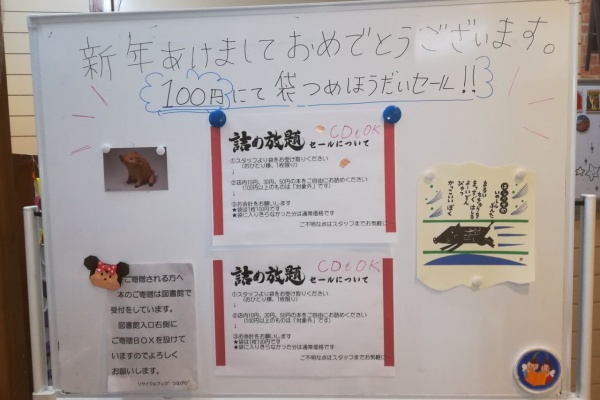 新年あけましておめでとうございます。
100円にて袋つめほうだいセール!!
詰め放題
セールについて
CDもOK
①スタッフより袋をお受け取りください
(おひとり様、1枚限り)
↓
②店内10円、30円、50円の本をご自由にお詰めください
(100円以上のものは「対象外」です)
↓
③お会計をお願いします
★袋は1枚100円です
★袋に入りきらなかった分は通常価格です
ご不明な点はスタッフまでお気軽に
詰め放題
セールについて
CDもOK
①スタッフより袋をお受け取りください
(おひとり様、1枚限り)
↓
②店内10円、30円、50円の本をご自由にお詰めください
(100円以上のものは「対象外」です)
↓
③お会計をお願いします
★袋は1枚100円です
★袋に入りきらなかった分は通常価格です
ご不明な点はスタッフまでお気軽に
ご寄贈される方へ
本のご寄贈は図書館で
受付をしています。
図書館入口右側に
ご寄贈BOXを設けて
いますのでよろしく
お願いします。
かっこいい ぼく